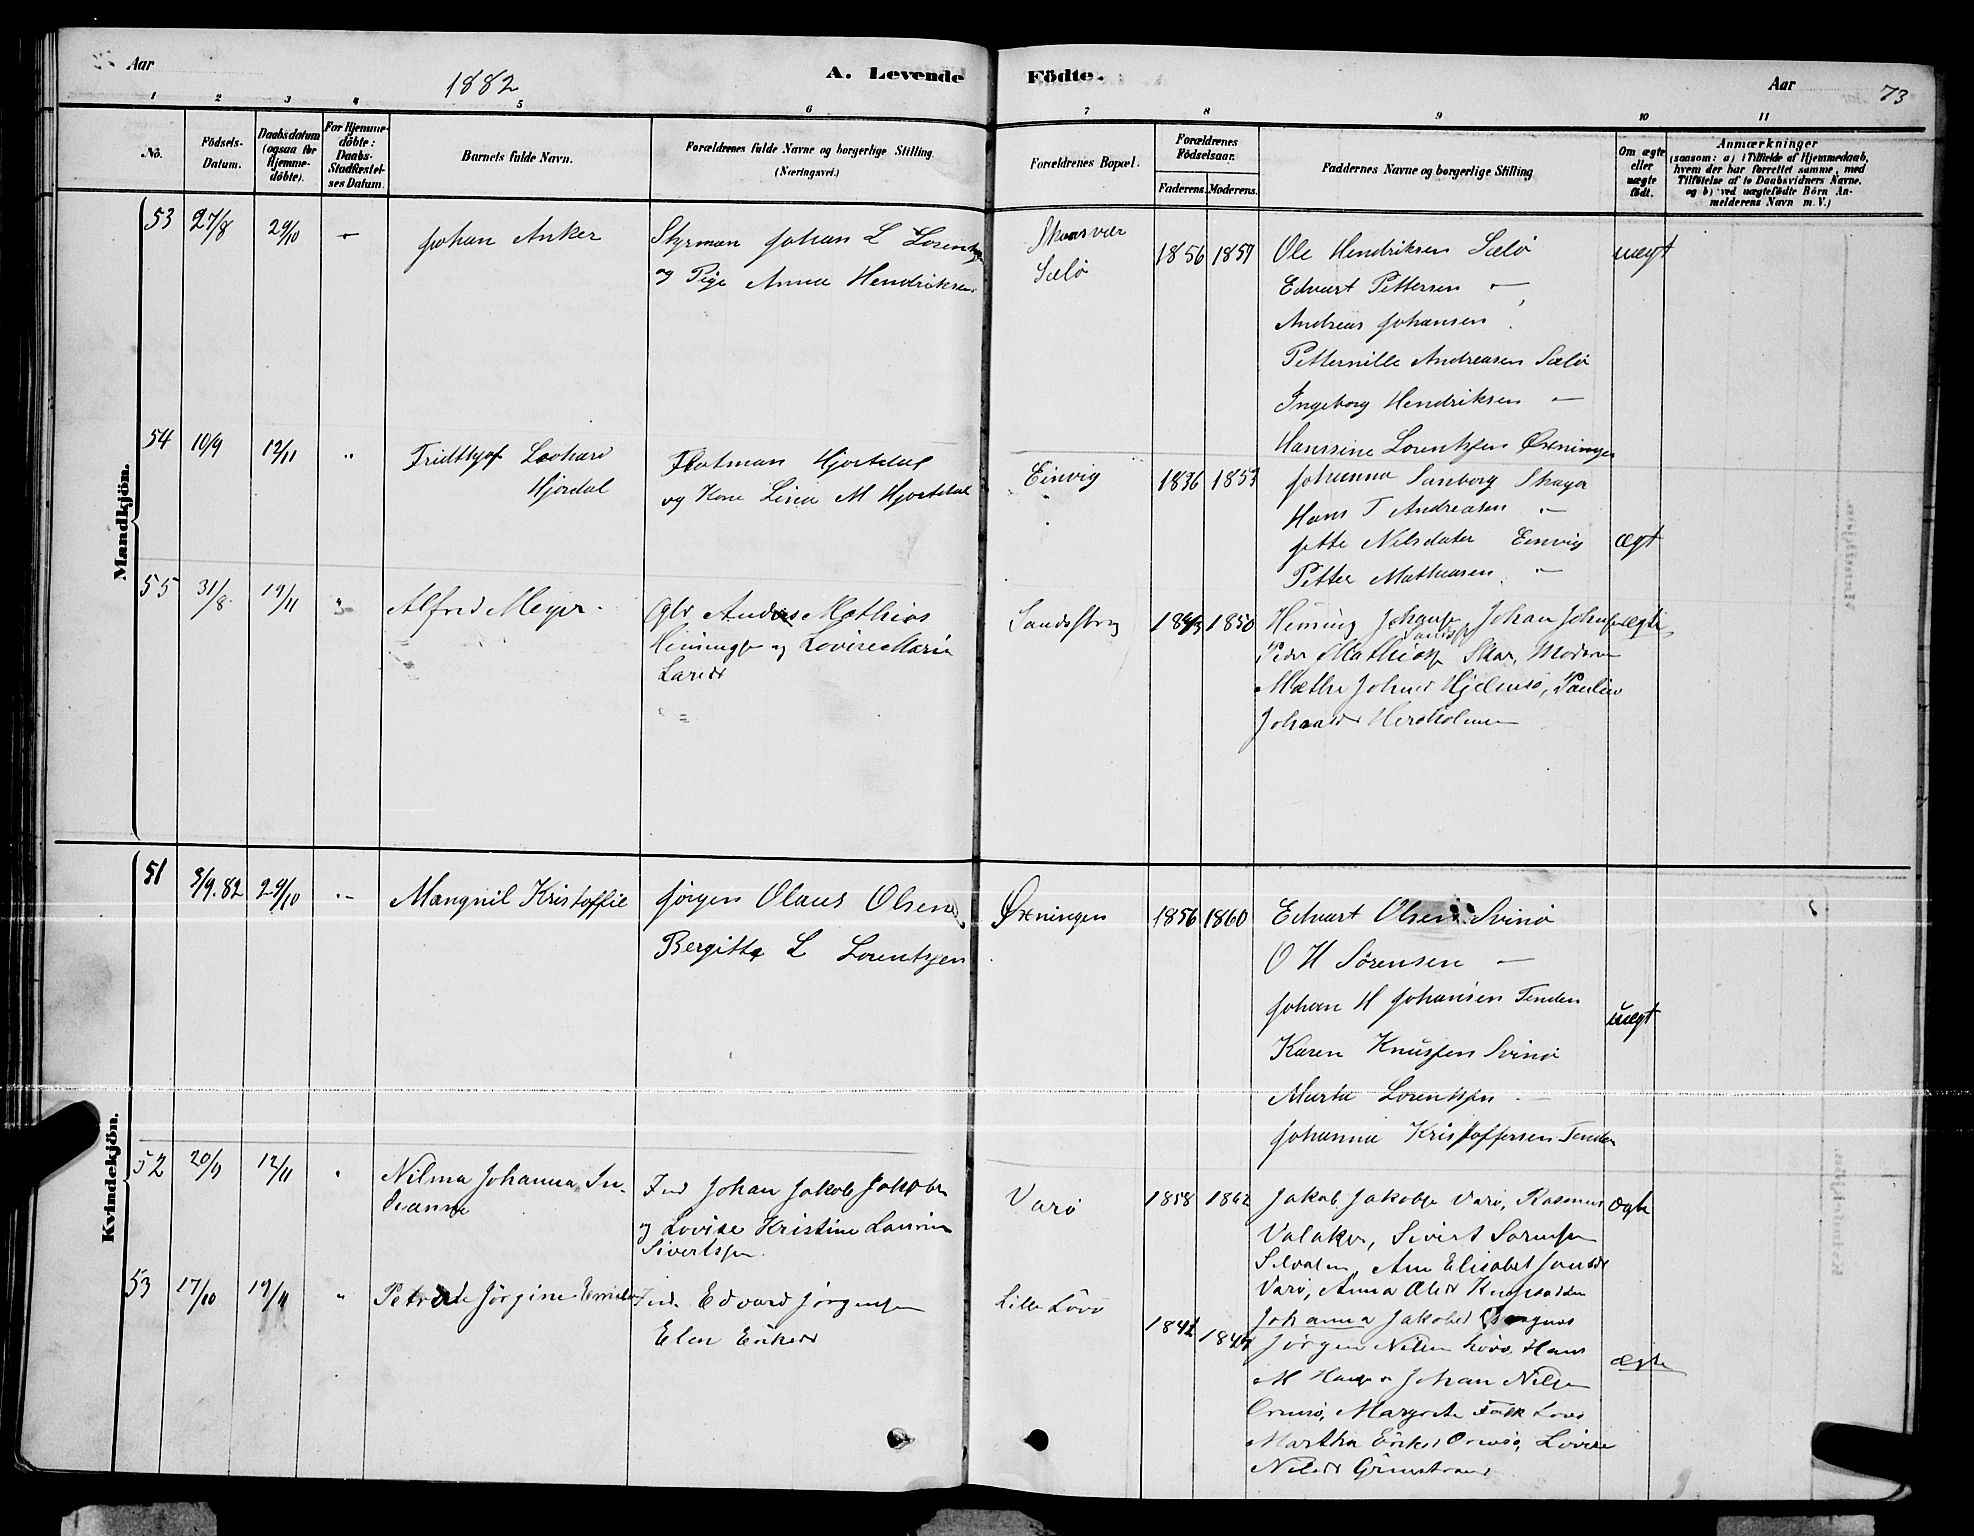 Aar
1882
A. Levende
Födte.
Aar
73
1 2 3 4 5 6 7 8 9 10 11
No.
Födsels-
Datum.
Daabsdatum
(ogsaa for
Hjemme-
döbte).
For Hjemme-
döbte:
Daabs-
Stadfæstel-
ses Datum.
Barnets fulde Navn.
Forældrenes fulde Navne og borgerlige Stilling
(Næringsvei.)
Forældrenes Bopæl.
Forældrenes
Födselsaar.
Faderens. Moderens.
Faddernes Navne og borgerlige Stilling
Om ægte
eller
uægte
födt.
Anmærkninger
(saasom: a) i Tilfælde af Hjemmedaab,
hvem der har forrettet samme, med
Tilföielse af to Daabsvidners Navne.
og b) ved uægtefödte Börn An-
melderens Navn m. V.)
Mandkjön.
53 27/8 29/10 — Johan Anker
Styrman Johan L Lorentsen
og Pige Anna Hendriksen
Skaasvær
Sælö
1856 1857
Ole Hendriksen Sælö
Edvart Pettersen —
Andreas Johansen
Petternille Andreasen Sælö
Ingeborg Hendriksen —
Hanssine Lorentsen Öxningen
uægt
54 10/9 12/11 " Fridthjof Leohard
Hjordal
Flotman Hjortdal
og Kone Lina M Hjortdal
Einvig
1836 1853
Johanna Sanborg Skaga
Hans T Andreasen —
Jette Nelsdater Einvig
Petter Mathiasen —
ægt
55 31/8 19/11 " Alfred Meyer
Anders Mathias
Henningsen og Lovise Marie
Larsdr
1850
Hening Johansen Johan Johnsen
Peder Mathiass Skar, Moderen
Mæthe Johnsd Hjelmsö, Pauline
Johansdr Heroholmen
ægte
Kvindekjön.
51 3/9.82 29/10 — Mangnil Kristoffie
Jörgen Olaus Olsen
Bergitte L Lorentsen
Öxningen
1856 1860
Edvart Olsen Svinö
O H Sörensen —
Johan H Johansen Tenden
Karen Knutsen Svinö
Marta Lorentsen —
Johanna Kristoffersen Tenden
uægt
52 20/9 12/11 " Nilma Johanna In-
deanna
Ind Johan Jakob Jakobsen
og Lovise Kristine Laurine
Sivertsen
Varö
1858 1862
Jakob Jakobsen Varö, Rasmus
Valaker, Sivert Sörensen
Selvalen, Ane Elisabet Jonsdr
Varö, Anna Olsdr
Johanna Jakobsd
ægte
53 17/10 19/11 " Petrede Jörgine Emilie
Ind. Edvard Jörgensen
Elen Eriksdr
Lille Lövö
1842 1847
Jörgen Nilsen Lövö, Hans
M Hansen Johan Nilsen
Ormsö, Margrete Falk Lovö
Martha Eriksd Ormsö, Lovise
Nilsdr Grönstrand
ægte